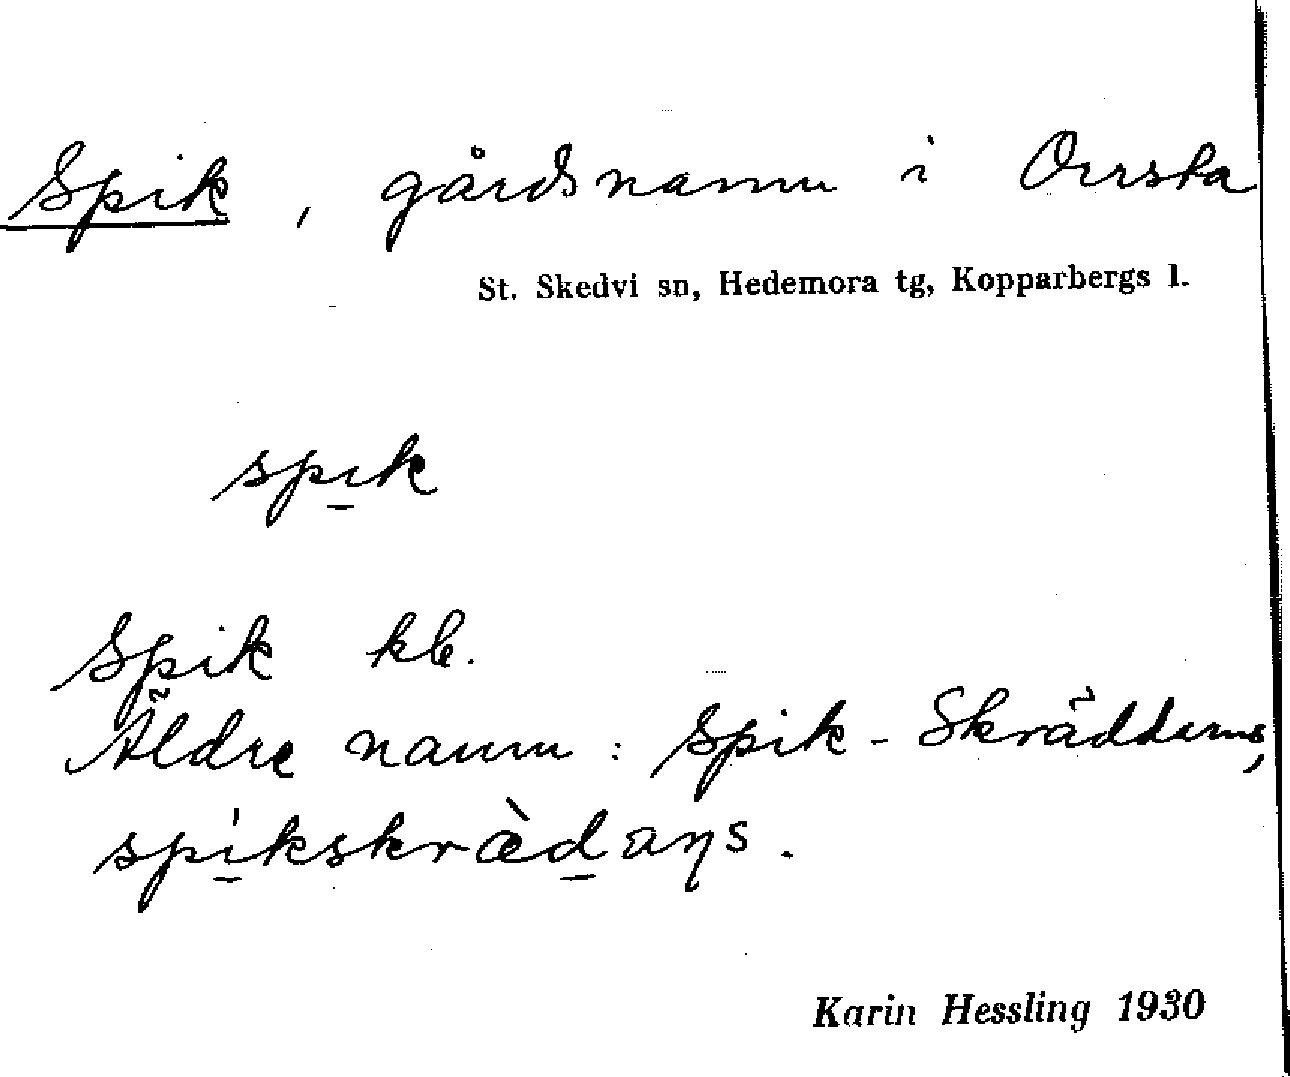 Spik, gårdsnamn i Orrsta
St. Skedvi sn, Hedemora tg, Kopparbergs l.
spı̲k
Spik kb.
Äldre namn: Spik-Skräddarns,
spı̲́kskræ̀d̲aŋs.
Karin Hessling 1930